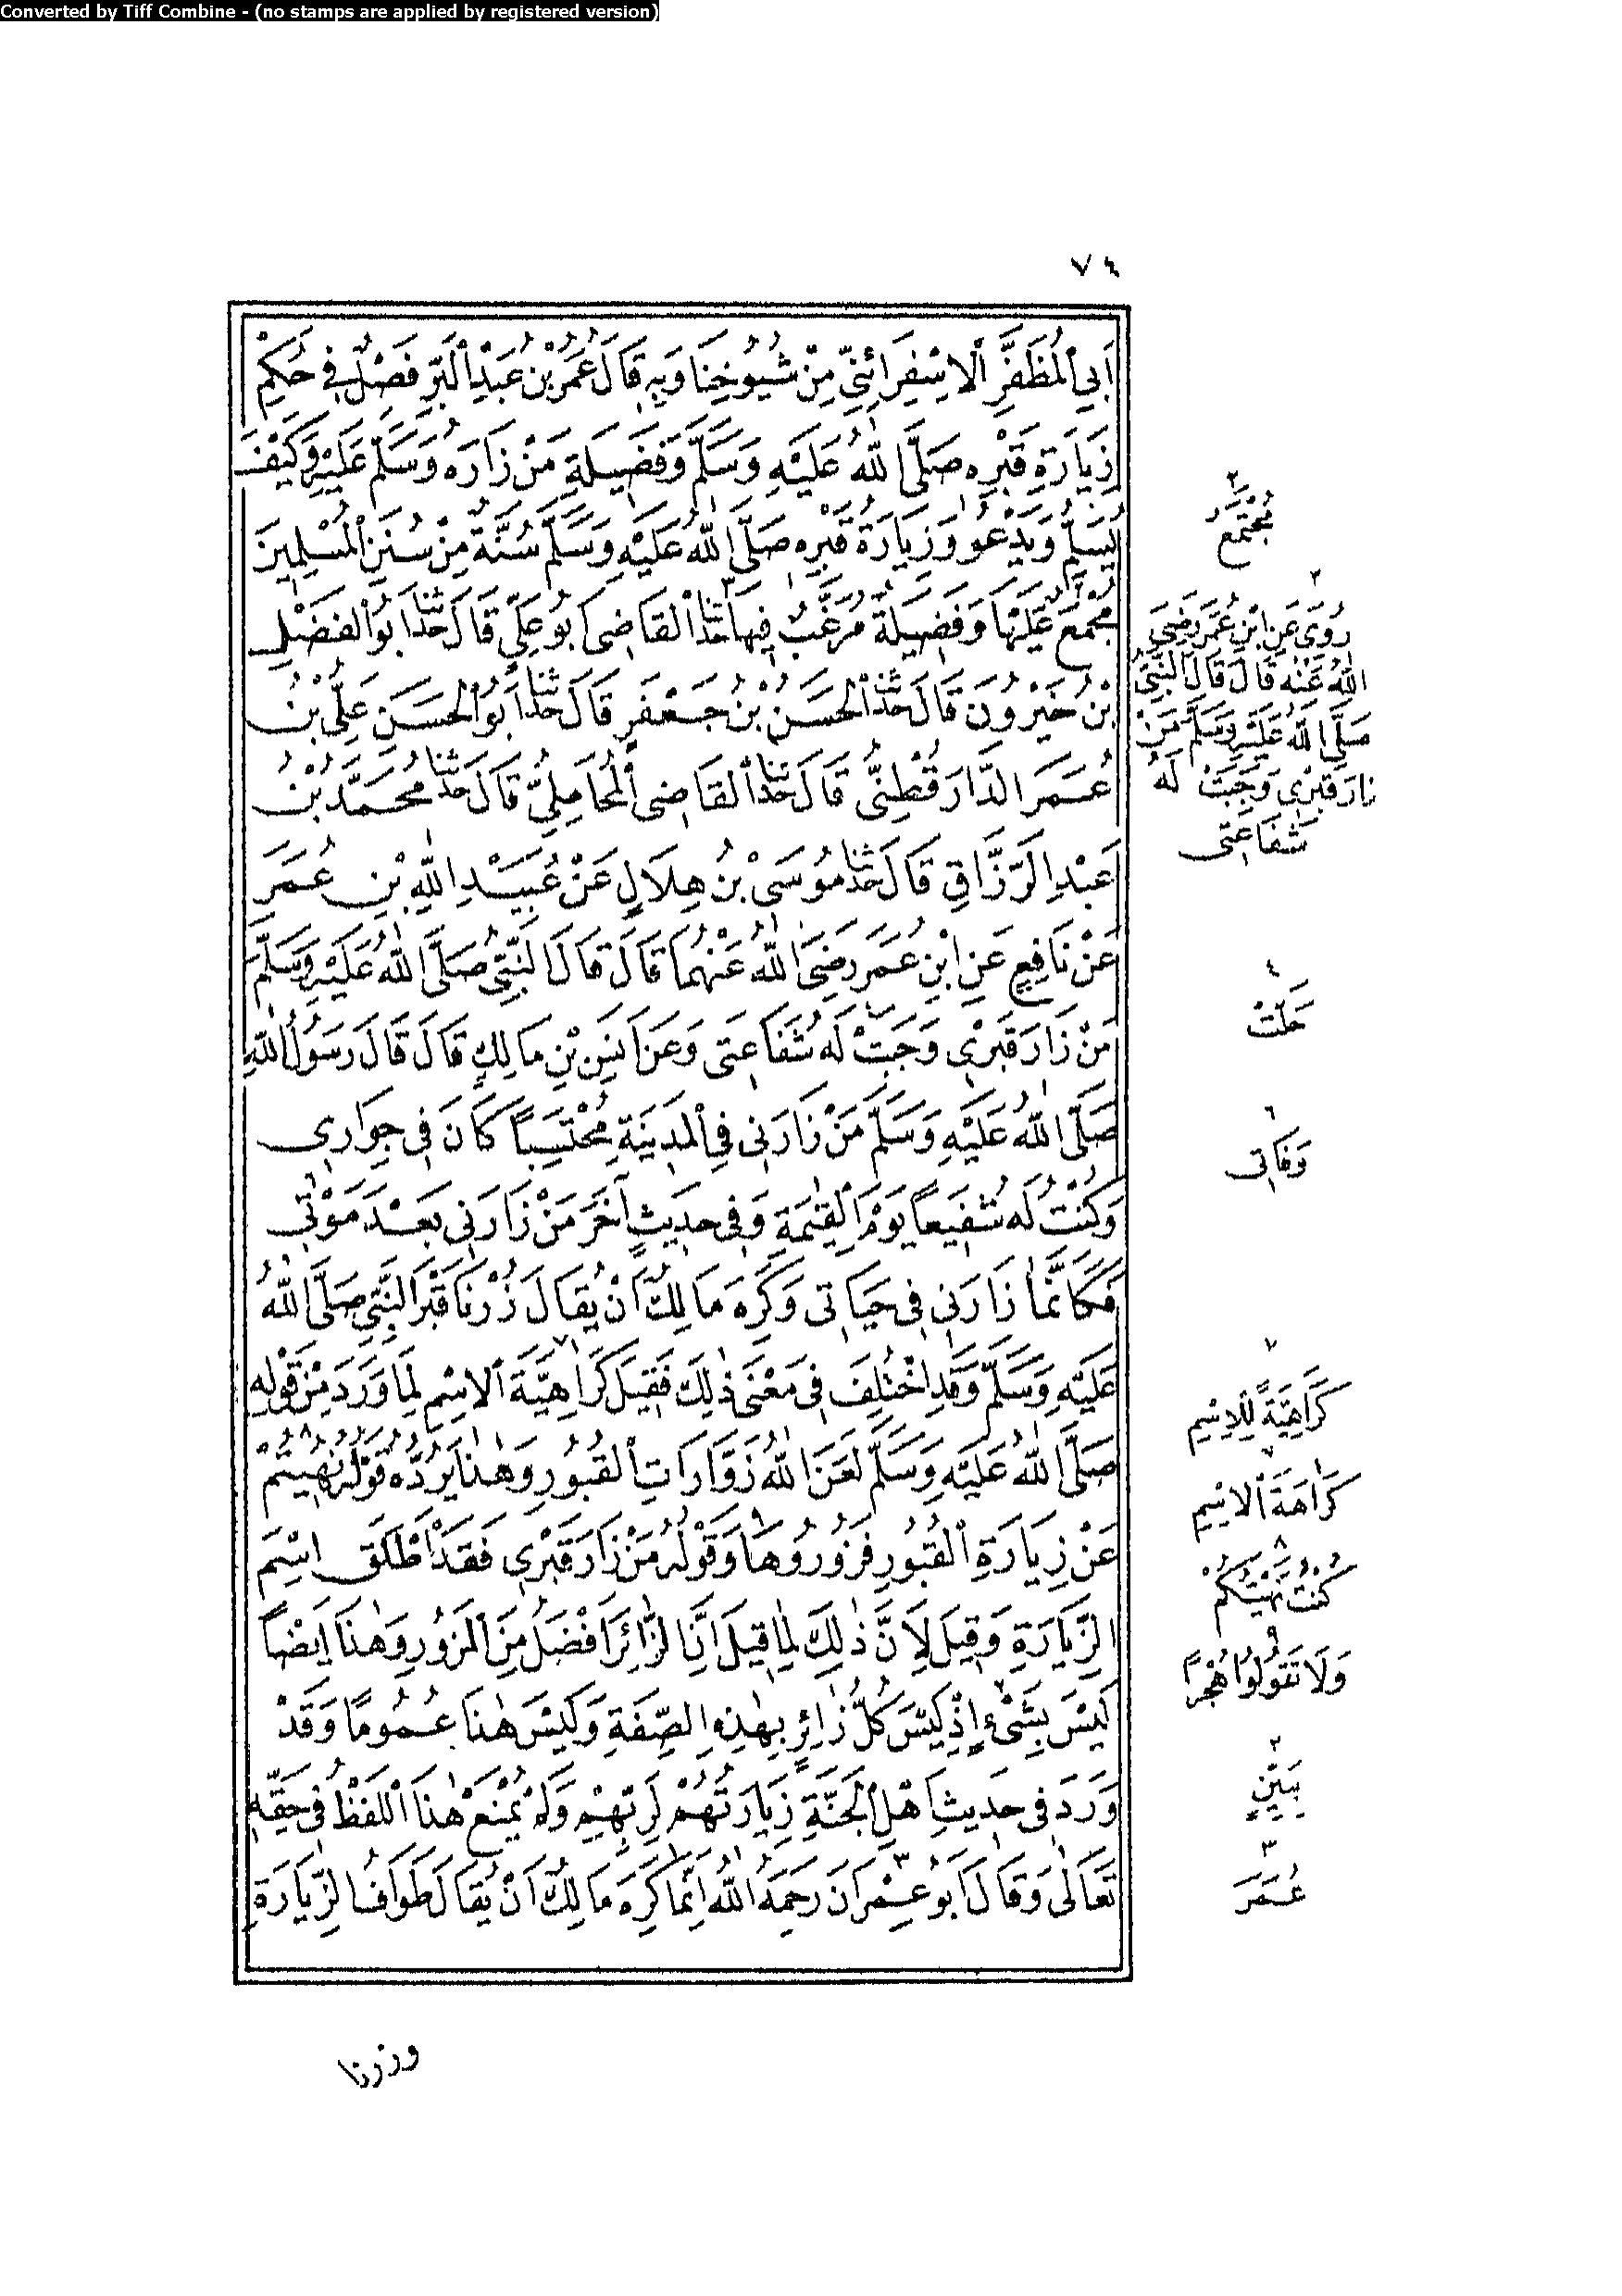 Converted by Tiff Combine - (no stamps are applied by registered version)
٧٤
اَبِي الْمُظَفَّرِ الْاِسْفِرَائِنِيِّ مِنْ شُيُوخِنَا وَبِهِ قَالَ عُمَرُ بْنُ عَبْدِ الْبَرِّ فَصْلٌ فِى حُكْمِ
زِيَارَةِ قَبْرِهِ صَلَّى اللهُ عَلَيْهِ وَسَلَّمَ وَفَضِيلَةِ مَنْ زَارَهُ وَسَلَّمَ عَلَيْهِ وَكَيْفَ
يُسَلِّمُ وَيَدْعُو وَزِيَارَةُ قَبْرِهِ صَلَّى اللهُ عَلَيْهِ وَسَلَّمَ سُنَّةٌ مِنْ سُنَنِ الْمُسْلِمِينَ
مُجْمَعٌ عَلَيْهَا وَفَضِيلَةٌ مُرَغَّبٌ فِيهَا حَدَّثَنَا الْقَاضِى اَبُو عَلِيٍّ قَالَ حَدَّثَنَا اَبُو الْفَضْلِ
بْنُ خَيْرُونَ قَالَ حَدَّثَنَا الْحَسَنُ بْنُ جَعْفَرٍ قَالَ حَدَّثَنَا اَبُو الْحَسَنِ عَلِىُّ بْنُ
عُمَرَ الدَّارَقُطْنِىُّ قَالَ حَدَّثَنَا الْقَاضِى الْمَحَامِلِيُّ قَالَ حَدَّثَنَا مُحَمَّدُ بْنُ
عَبْدِ الرَّزَّاقِ قَالَ حَدَّثَنَا مُوسَى بْنُ هِلَالٍ عَنْ عُبَيْدِ اللهِ بْنِ عُمَرَ
عَنْ نَافِعٍ عَنِ ابْنِ عُمَرَ رَضِىَ اللهُ عَنْهُمَا قَالَ قَالَ النَّبِىُّ صَلَّى اللهُ عَلَيْهِ وَسَلَّمَ
مَنْ زَارَ قَبْرِى وَجَبَتْ لَهُ شَفَاعَتِى وَعَنْ اَنَسِ بْنِ مَالِكٍ قَالَ قَالَ رَسُولُ اللهِ
صَلَّى اللهُ عَلَيْهِ وَسَلَّمَ مَنْ زَارَنِى فِى الْمَدِينَةِ مُحْتَسِبًا كَانَ فِى جِوَارِى
وَكُنْتُ لَهُ شَفِيعًا يَوْمَ الْقِيٰمَةِ وَفِى حَدِيثٍ آخَرَ مَنْ زَارَنِى بَعْدَ مَوْتِى
فَكَاَنَّمَا زَارَنِى فِى حَيَاتِى وَكَرِهَ مَالِكٌ اَنْ يُقَالَ زُرْنَا قَبْرَ النَّبِىِّ صَلَّى اللهُ
عَلَيْهِ وَسَلَّمَ وَقَدِ اخْتُلِفَ فِى مَعْنَى ذٰلِكَ فَقِيلَ كَرَاهِيَّةَ الْاِسْمِ لِمَا وَرَدَ مِنْ قَوْلِهِ
صَلَّى اللهُ عَلَيْهِ وَسَلَّمَ لَعَنَ اللهُ زَوَّارَاتِ الْقُبُورِ وَهٰذَا يَرُدُّهُ قَوْلُهُ نُهِيتُمْ
عَنْ زِيَارَةِ الْقُبُورِ فَزُورُوهَا وَقَوْلُهُ مَنْ زَارَ قَبْرِى فَقَدْ اَطْلَقَ اسْمَ
الزِّيَارَةِ وَقِيلَ لِاَنَّ ذٰلِكَ لِمَا قِيلَ اِنَّ الزَّائِرَ اَفْضَلُ مِنَ الْمَزُورِ وَهٰذَا اَيْضًا
لَيْسَ بِشَىْءٍ اِذْ لَيْسَ كُلُّ زَائِرٍ بِهٰذِهِ الصِّفَةِ وَلَيْسَ هٰذَا عُمُومًا وَقَدْ
وَرَدَ فِى حَدِيثِ اَهْلِ الْجَنَّةِ زِيَارَتُهُمْ لِرَبِّهِمْ وَلَمْ يُمْنَعْ هٰذَا اللَّفْظُ فِى حَقِّهِ
تَعَالٰى وَقَالَ اَبُو عِمْرَانَ رَحِمَهُ اللهُ اِنَّمَا كَرِهَ مَالِكٌ اَنْ يُقَالَ طَوَافُ الزِّيَارَةِ
٢
مُجْتَمَعٌ
٢
رُوِىَ عَنِ ابْنِ عُمَرَ رَضِىَ
اللهُ عَنْهُ قَالَ قَالَ النَّبِىُّ
صَلَّى اللهُ عَلَيْهِ وَسَلَّمَ مَنْ
زَارَ قَبْرِى وَجَبَتْ لَهُ
شَفَاعَتِى
٤
حَلَّتْ
٦
وَفَاتِى
٧
كَرَاهِيَةً لِلْاِسْمِ
٧
كَرَاهَةَ الْاِسْمِ
٨
كُنْتُ نَهَيْتُكُمْ
٩
وَلَا تَقُولُوا هُجْرًا
٢
بَيِّنٍ
٣
عُمَرَ
وزرنا